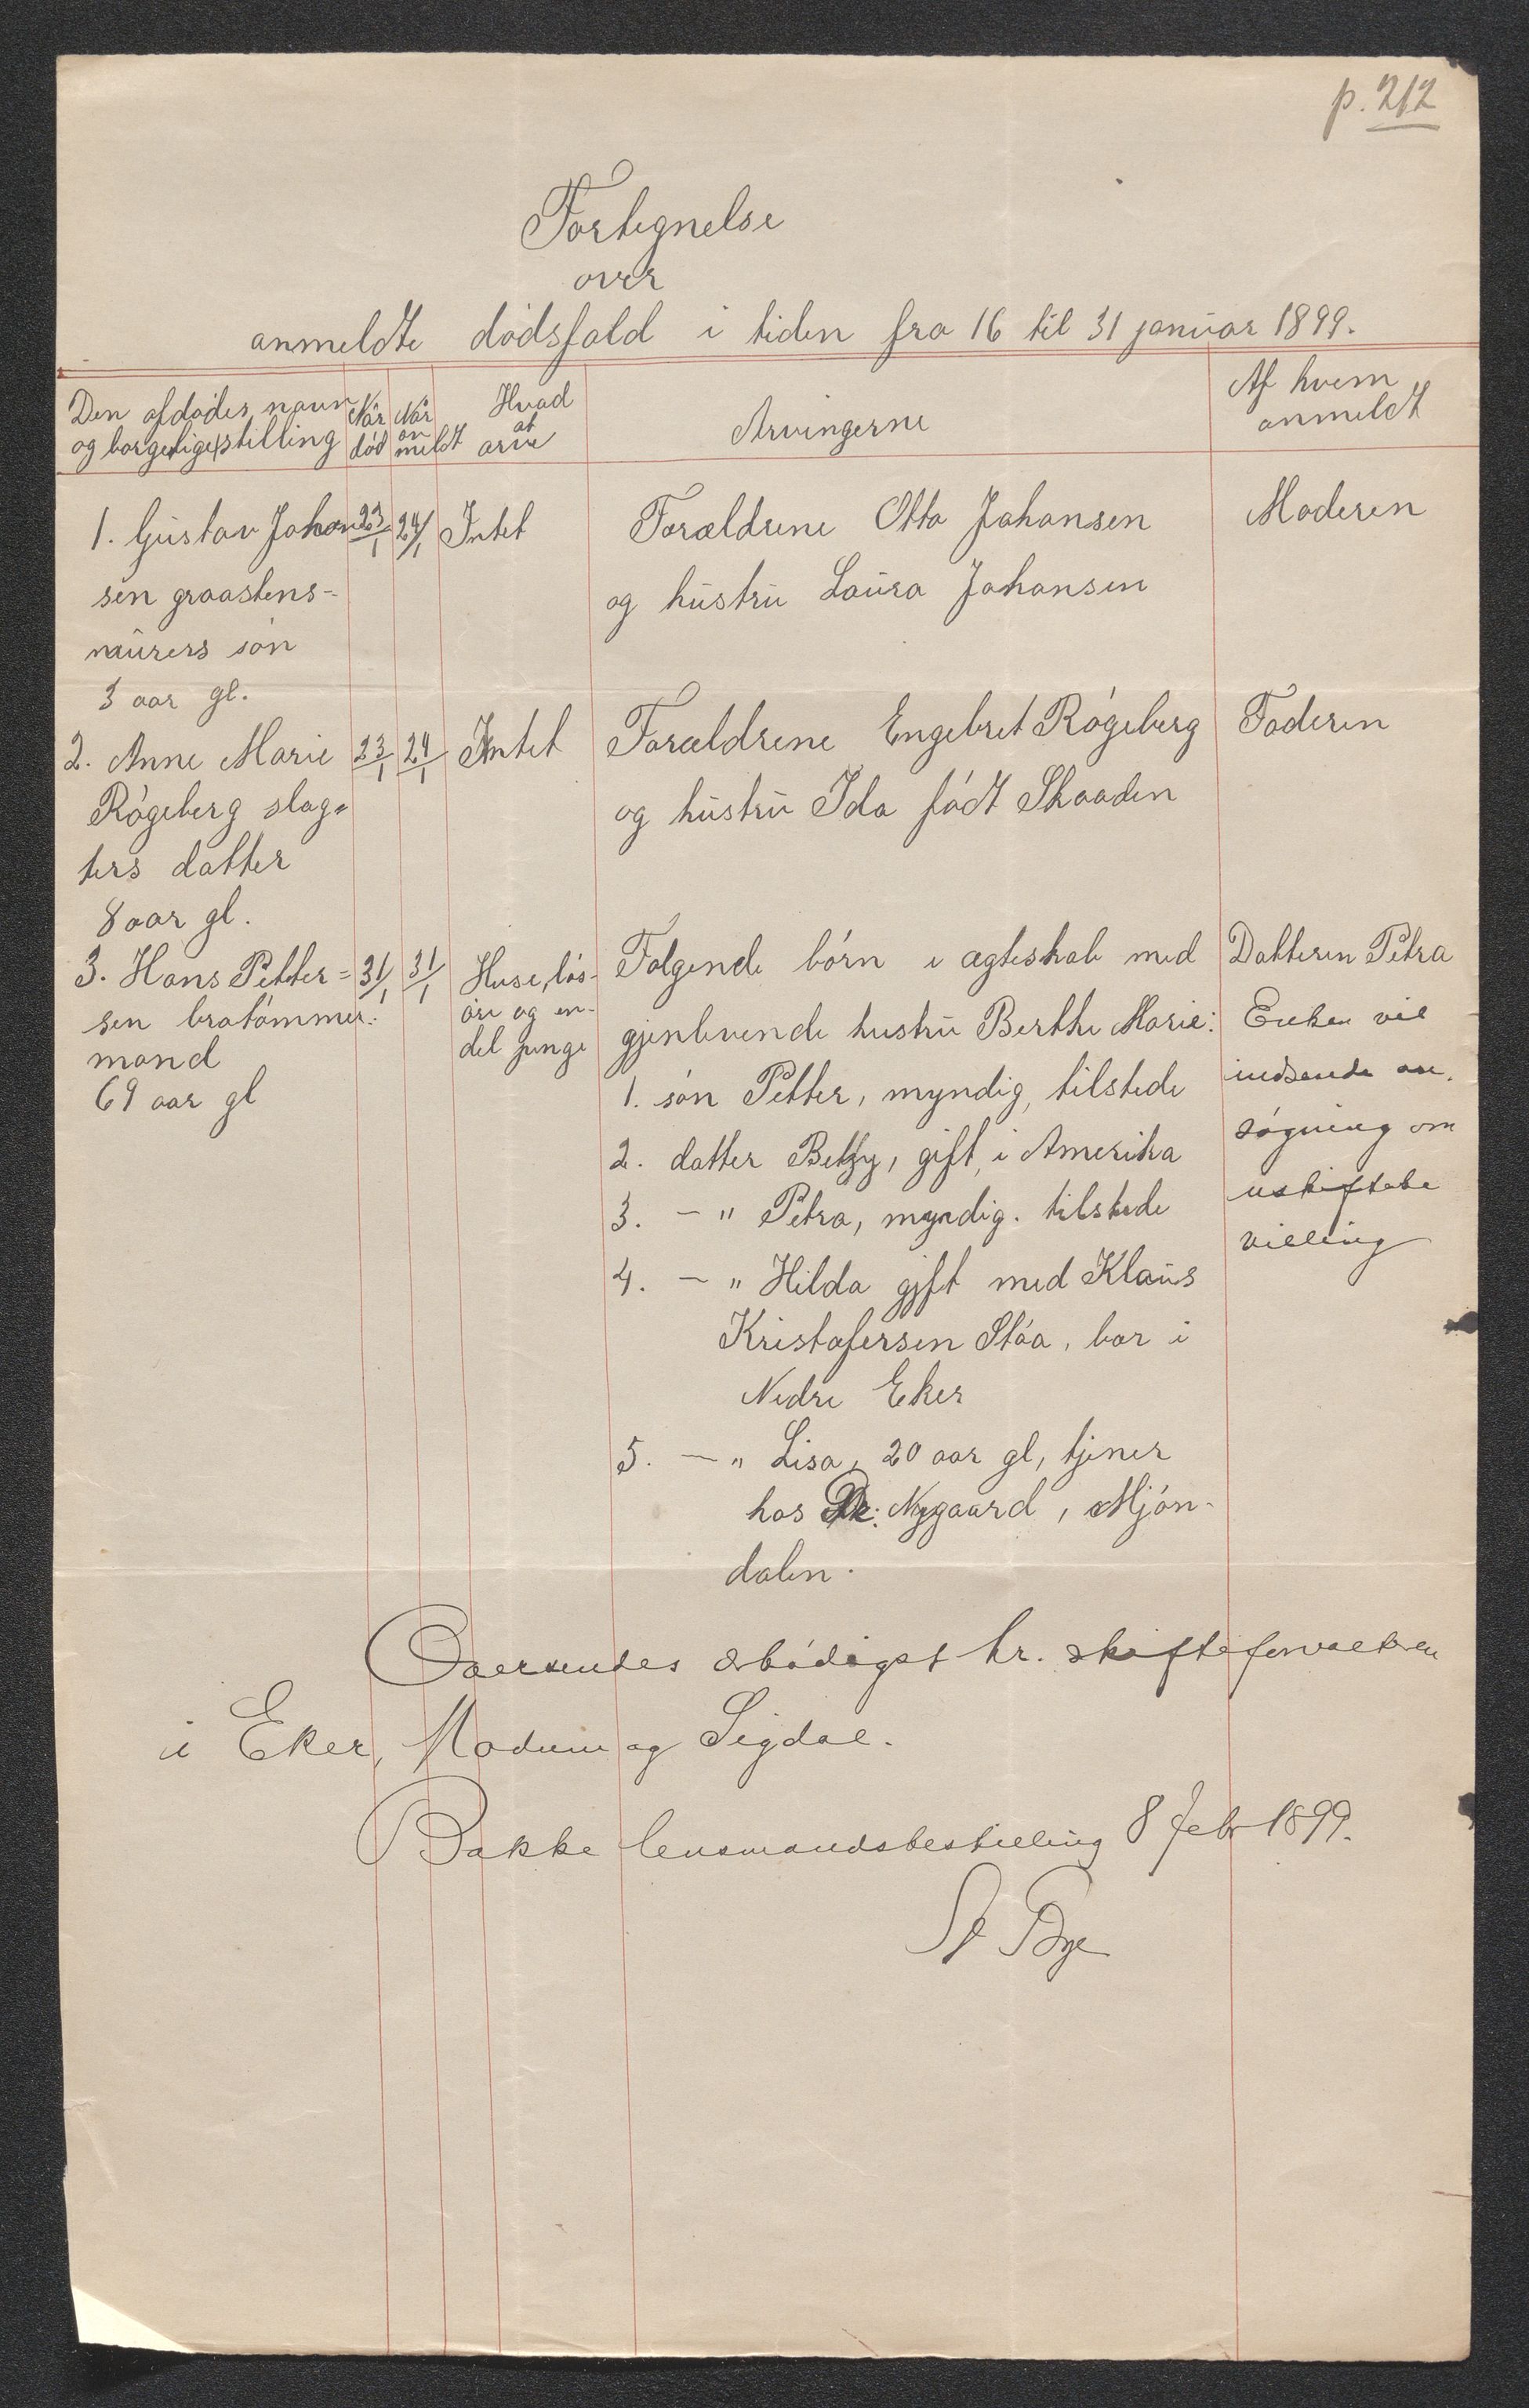 p. 212
Fortegnelse
over
anmeldte dödsfald i tiden fra 16 til 31 januar 1899.
Den afdödes navn og borgerlige stilling
Når död
Når anmeldt
Hvad at arve
Arvingerne
Af hvem anmeldt
1. Gustav Johan 23/1 24/1 Intet Forældrene Otto Johansen Moderen
sen graastens- og hustru Laura Johansen
murers sön
3 aar gl.
2. Anne Marie 23/1 24/1 Intet Forældrene Engebret Rögeberg Faderen
Rögeberg slag- og hustru Ida födt Skaaden
ters datter
8 aar gl.
3. Hans Petter= 31/1 31/1 Huse, lös- Følgende börn i ægteskab med Datteren Petra
sen bratömmer: öre og en- gjenlevende hustru Berthe Marie: Enken vil
mand del penge 1. sön Petter, myndig, tilstede indsende an.
69 aar gl 2. datter Betzy, gift, i Amerika sögning om
3. — " Petra, myndig. tilstede uskiftebe
4. — " Hilda gift med Klaus villing
Kristofersen Stöa, bor i
Nedre Eker
5. — " Lisa, 20 aar gl, tjener
hos Dr. Nygaard, Mjön-
dalen.
Oversendes ærbödigst hr. skifteforvalteren
i Eker, Modum og Sigdal.
Bakke lensmandsbestilling 8 feb 1899.
St Bye